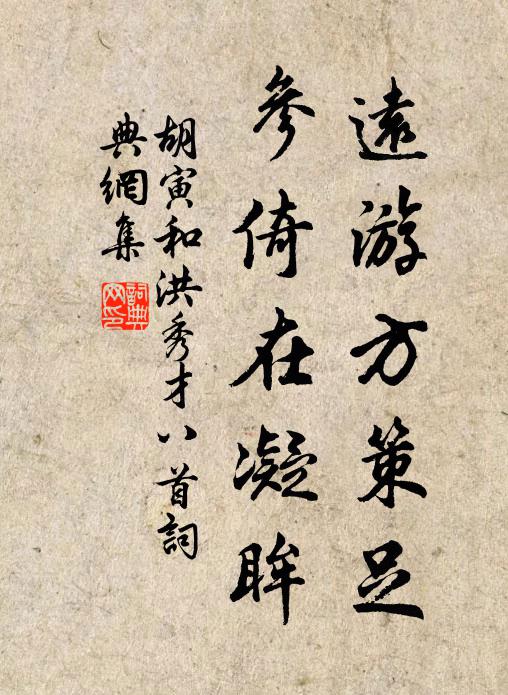 遠游方策足
參倚在凝眸
胡寅和洪秀才八首詞
典網集
詞典網印